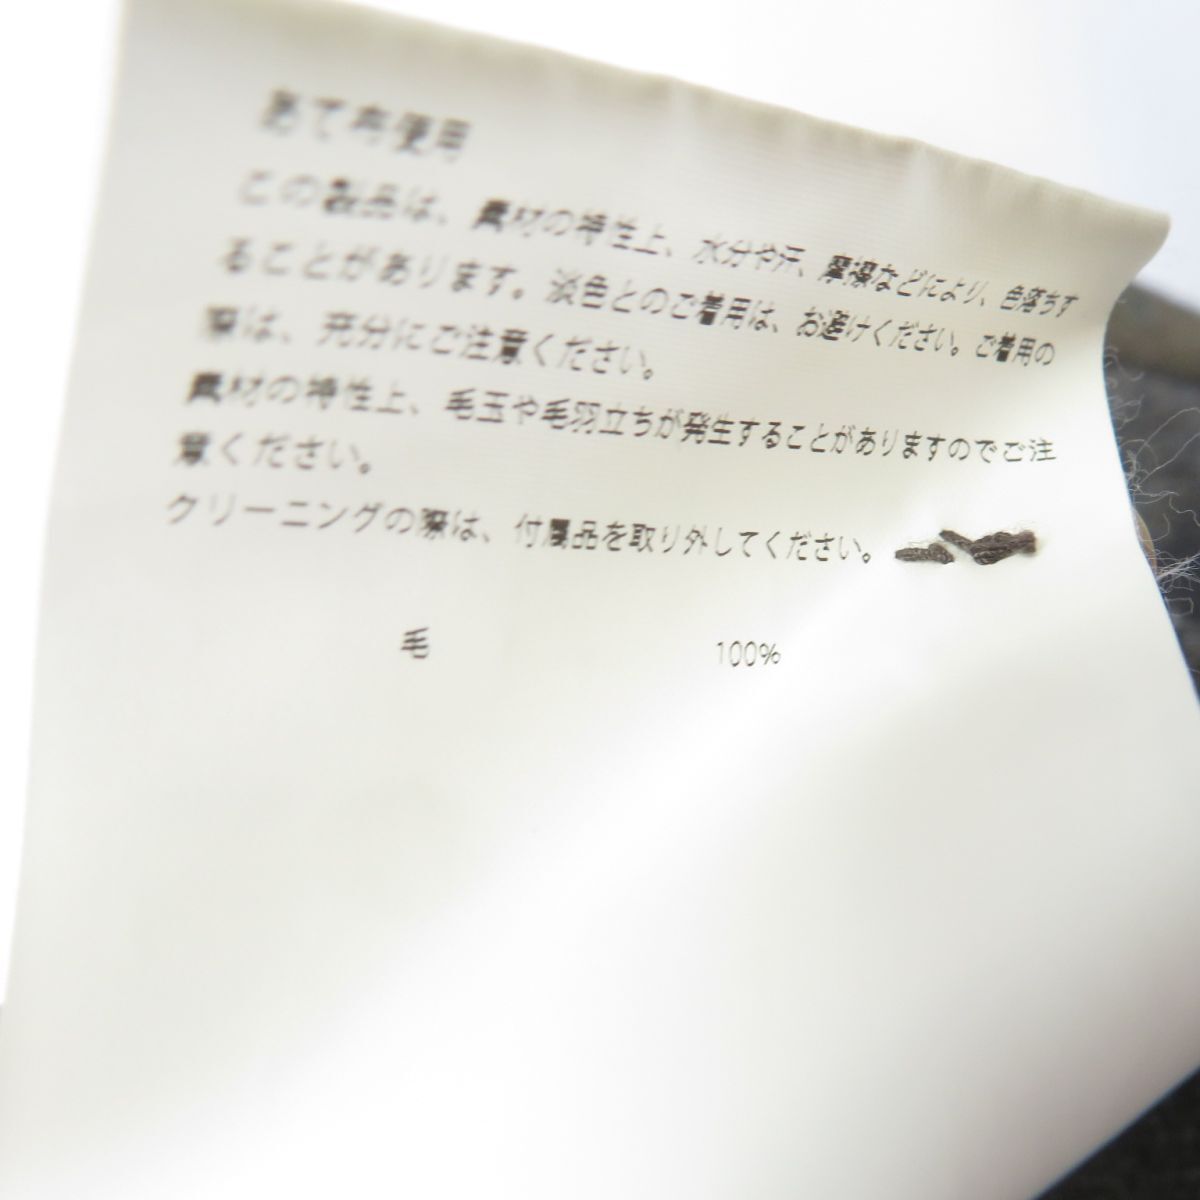 あて布使用
この製品は、素材の特性上、水分や汗、摩擦などにより、色落ちす
ることがあります。淡色とのご着用は、お避けください。ご着用の
際は、充分にご注意ください。
素材の特性上、毛玉や毛羽立ちが発生することがありますのでご注
意ください。
クリーニングの際は、付属品を取り外してください。
毛 100%